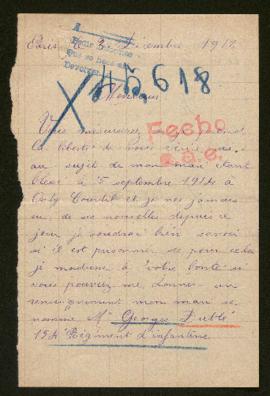 Paris le 3 Décembre 1917
45618
Monsieur
Fecho
Vous m'excuserez
la liberté de vous écrire
au sujet de mon mari étant
blessé à 5 septembre 1914 à
et je nes jamais
eu de ses nouvelles depuis ce
jour je voudrai bien savoir
s'il est prisonier se pour cela
je madresse à votre bonté si
vous pouviez me donner un
renseignement mon mari se
nomme Mr Georges
154 Régiment d'infanterie